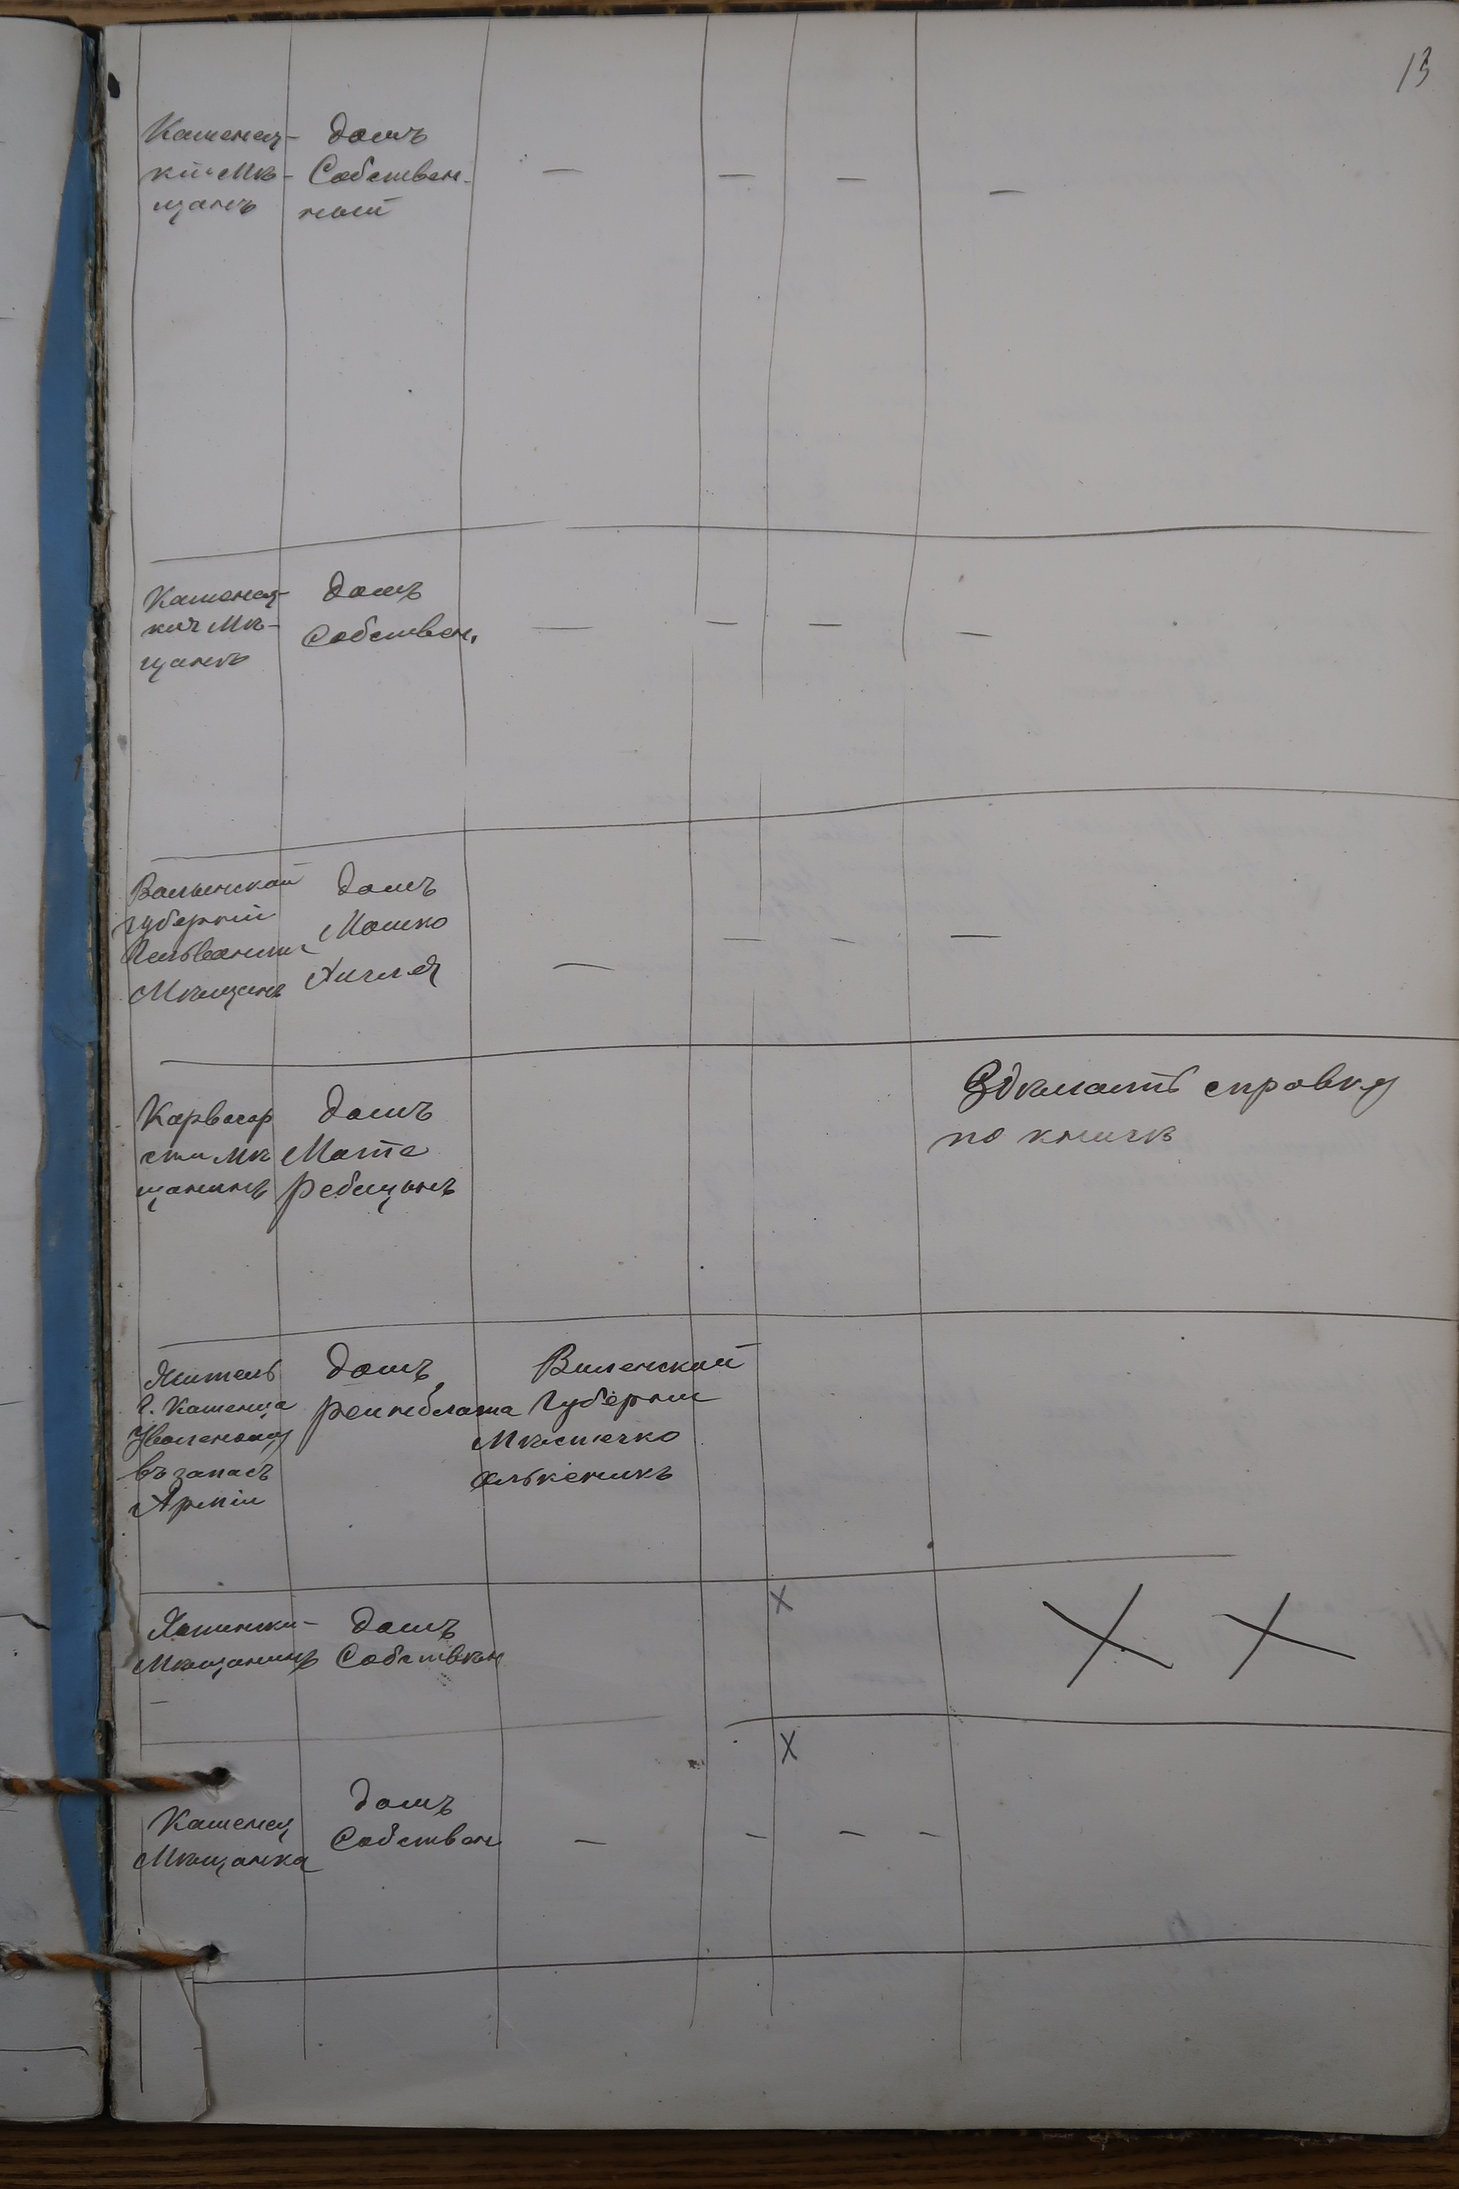 13
Каменец-
кій Мѣ-
щанъ
Домъ
Собствен-
ный
— — — —
Каменец-
кій Мѣ-
щанъ
Домъ
Собствен.
— — — —
Волынской
Губерніи
Мѣщанъ
Домъ
Мошко
— — — —
Карвасар
скій Мѣ
щанинъ
Домъ
Мотя
Ребицынъ
Здѣлать справку
по книгѣ
Житель
г. Каменца
въ запасъ
Арміи
Домъ
Рейнблата
Виленской
Губерніи
Мѣстечко
Олькеникъ
Мѣщанинъ
—
Домъ
Собствѣн
X
X X
X
Каменец
Мѣщанка
Домъ
Собствен
— — — —